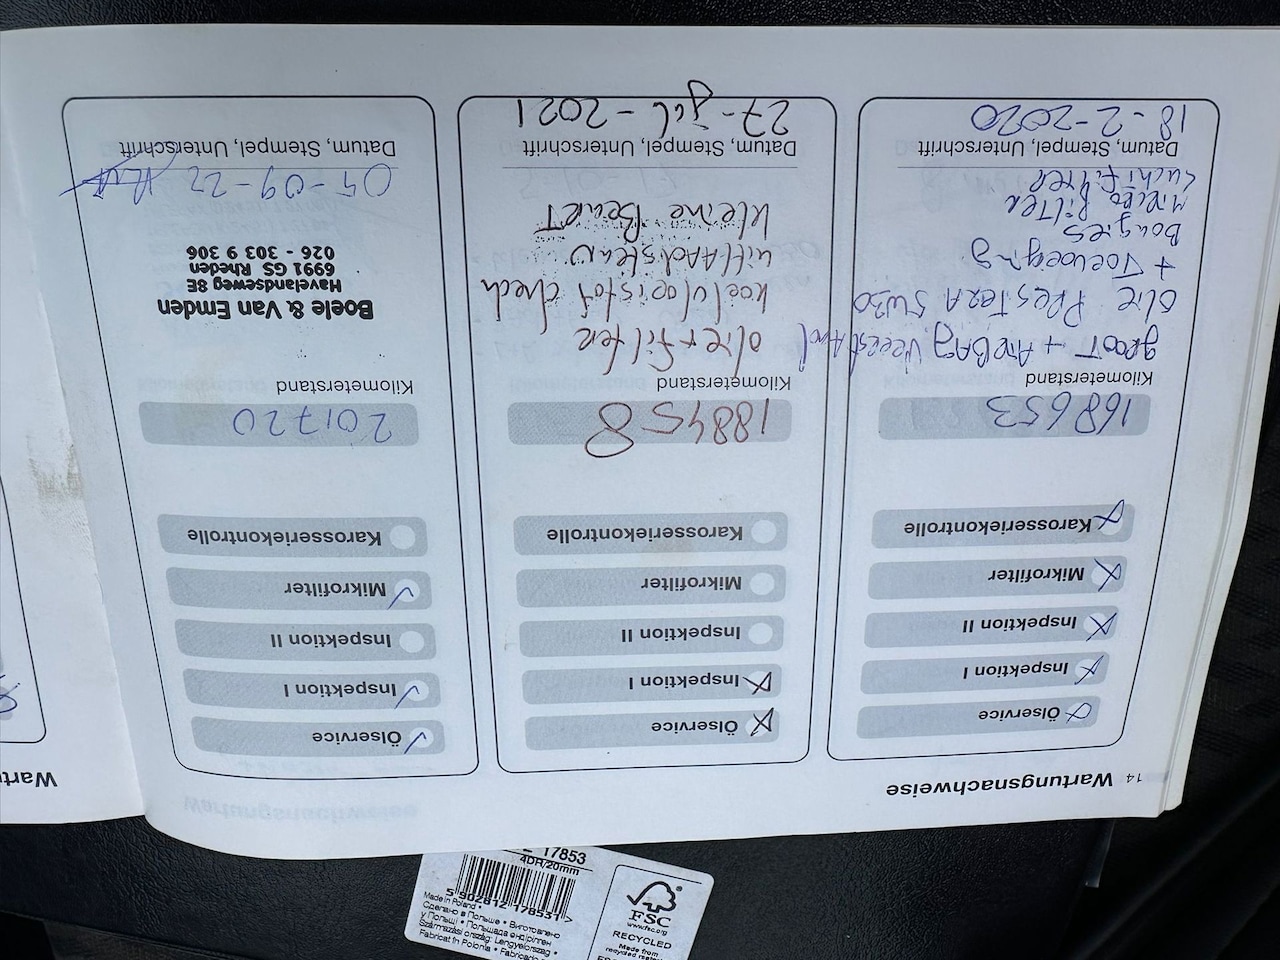 14 Wartungsnachweise
Ölservice
Inspektion I
Inspektion II
Mikrofilter
Karosseriekontrolle
168653
Kilometerstand
groot + APK
olie 5W30
+ Toevoeging
Bougies
Micro filter
Luchtfilter
Datum, Stempel, Unterschrift
18-2-2020
Ölservice
Inspektion I
Inspektion II
Mikrofilter
Karosseriekontrolle
188458
Kilometerstand
olie + filter
koelvloeistof check
kleine Beurt
Datum, Stempel, Unterschrift
27-jul-2021
Ölservice
Inspektion I
Inspektion II
Mikrofilter
Karosseriekontrolle
201720
Kilometerstand
Boele & Van Emden
Havelandseweg 8E
6991 GS Rheden
026 - 303 9 306
05-09-22
Datum, Stempel, Unterschrift
Wart
17853
4DR/20mm
5 902812 178531 >
Made in Poland •
Сделано в Польше • Виготовлено
у Польщі •
Származási ország: Lengyelország •
Fabricat în Polonia • Fabricado
FSC
www.fsc.org
RECYCLED
Made from
recycled